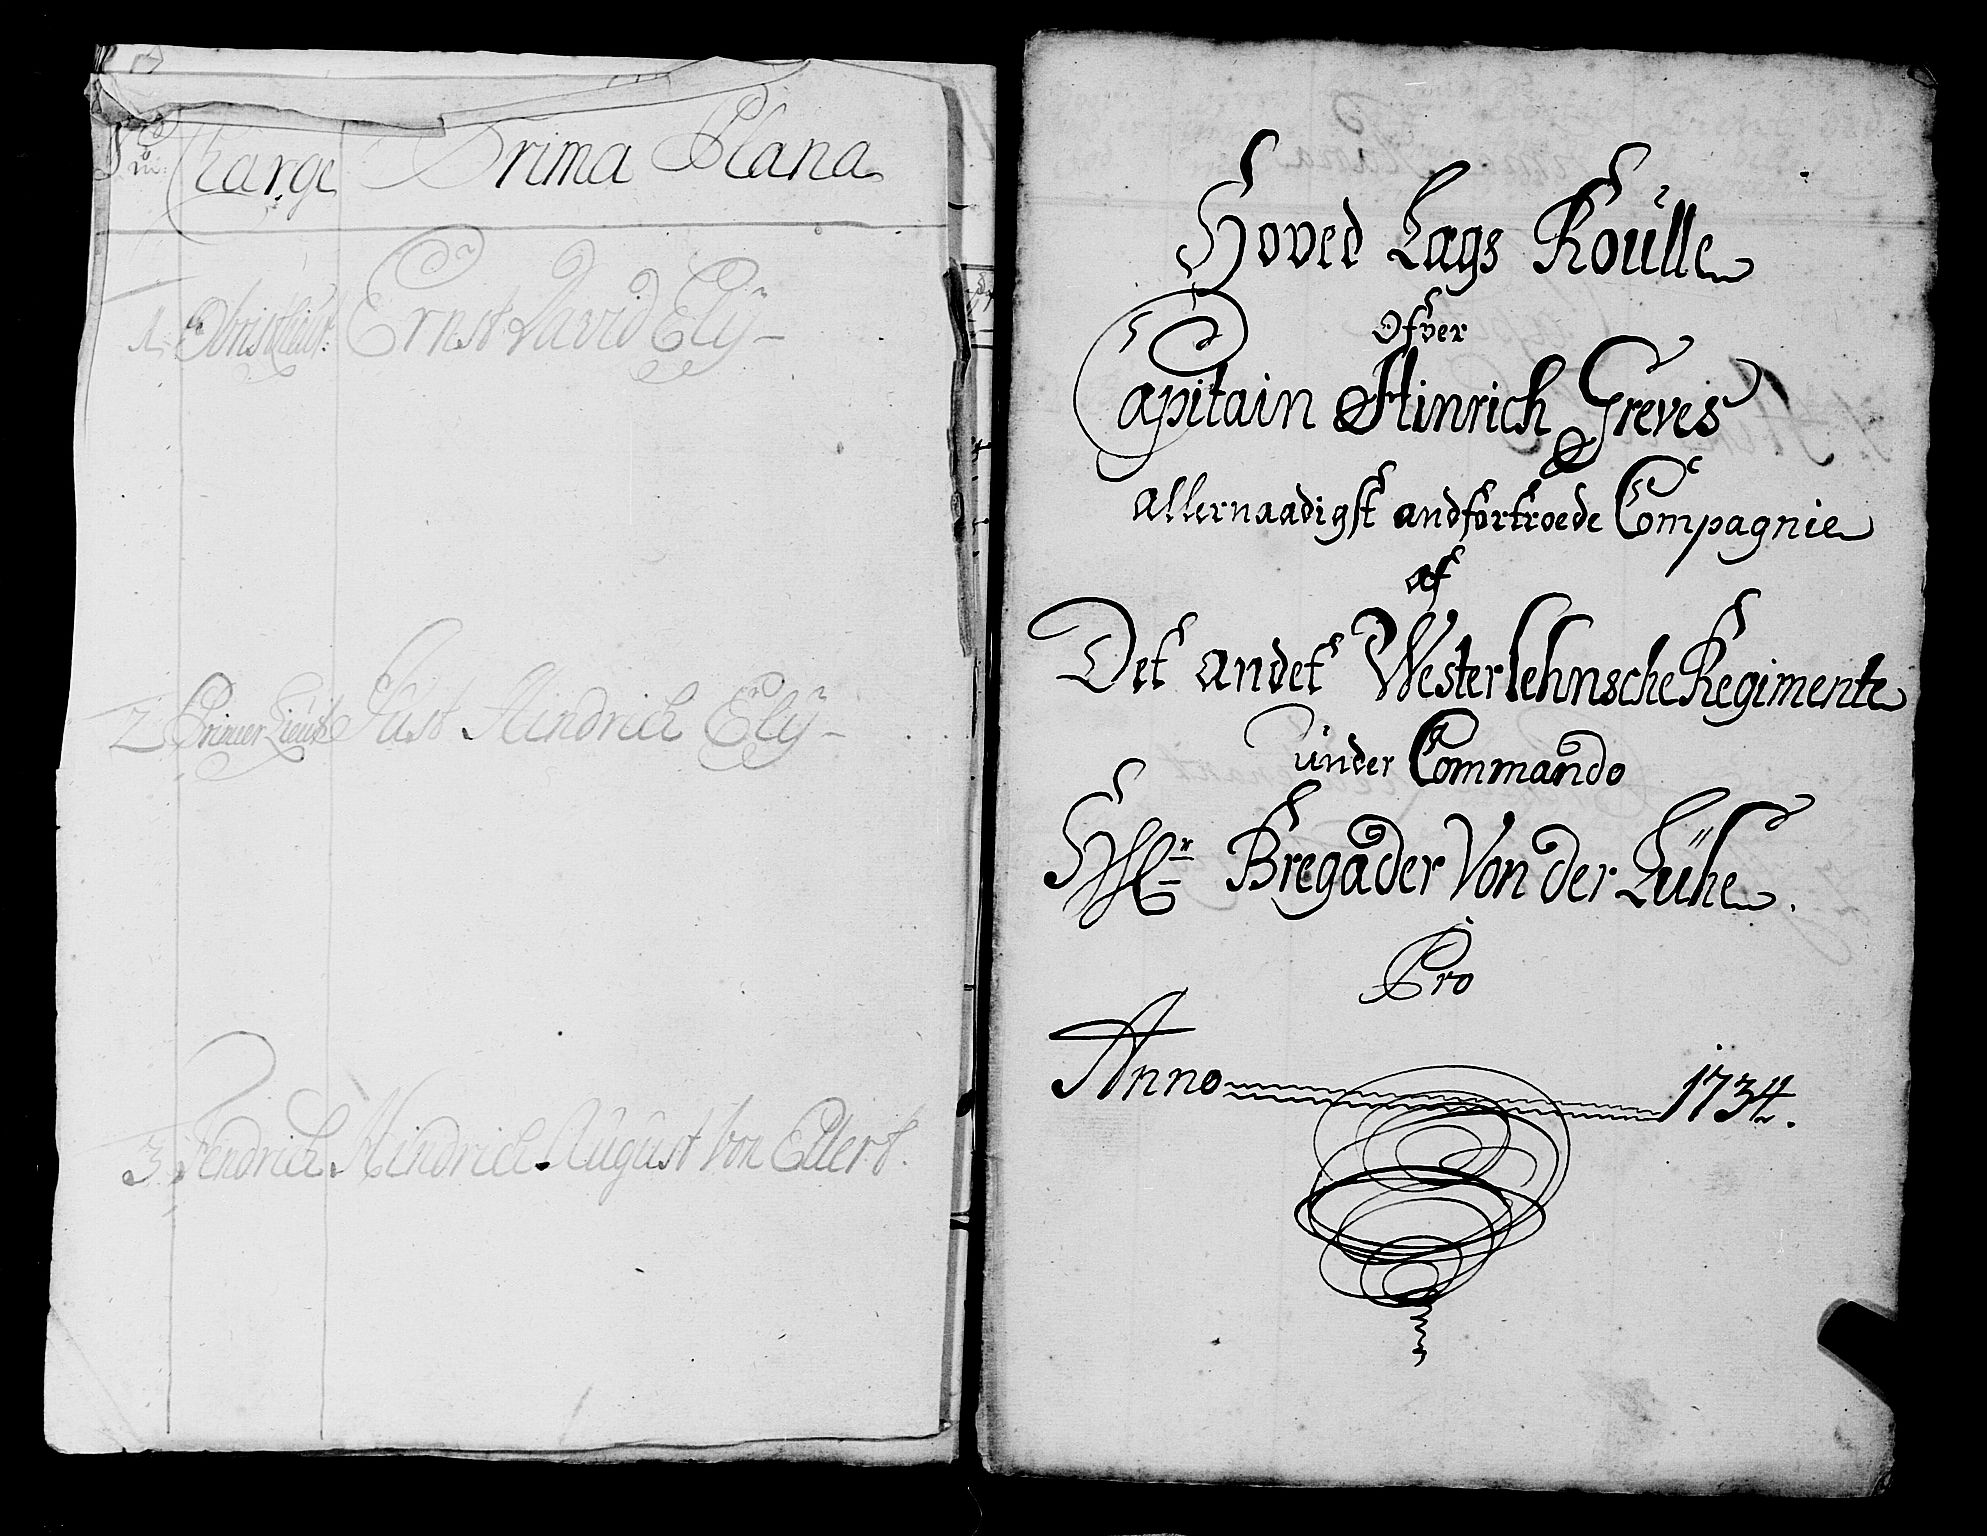 No Charge Prima Plana
1. Obristlieut: Ernst David Elÿ
2 Primer Lieut Just Hindrich Elÿ
3. Fendrich Hindrich August Von Ellert.
Hoved Lags Roulle
Ofver
Capitain Hinrich Greves
allernaadigst andfortroede Compagnie
af
Det andet Westerlehnsche Regimente
under Commando
Hr Bregader Von der Lühe.
Pro
Anno 1734.